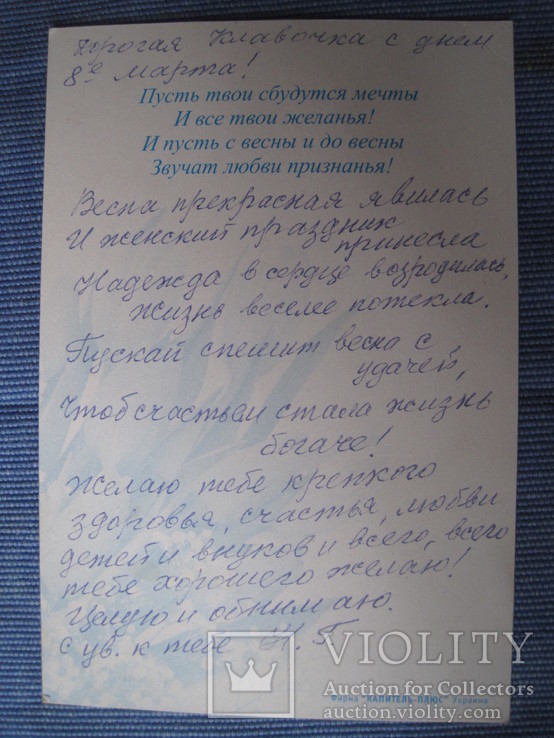 Дорогая Клавочка с днем
8е Марта!
Пусть твои сбудутся мечты
И все твои желанья!
И пусть с весны и до весны
Звучат любви признанья!
Весна прекрасная явилась
И женский праздник
принесла
Надежда в сердце возродилась,
жизнь веселее потекла.
Пускай спешит весна с
удачей,
Чтоб счастьем стала жизнь
богаче!
Желаю тебе крепкого
здоровья, счастья, любви
детей и внуков и всего, всего
тебе хорошего желаю!
Целую и обнимаю.
с ув. к тебе Н. Г.
Фирма "КАПИТЕЛЬ-ПЛЮС" Украина
VIOLITY
Auction for Collectors
auction.violity.com